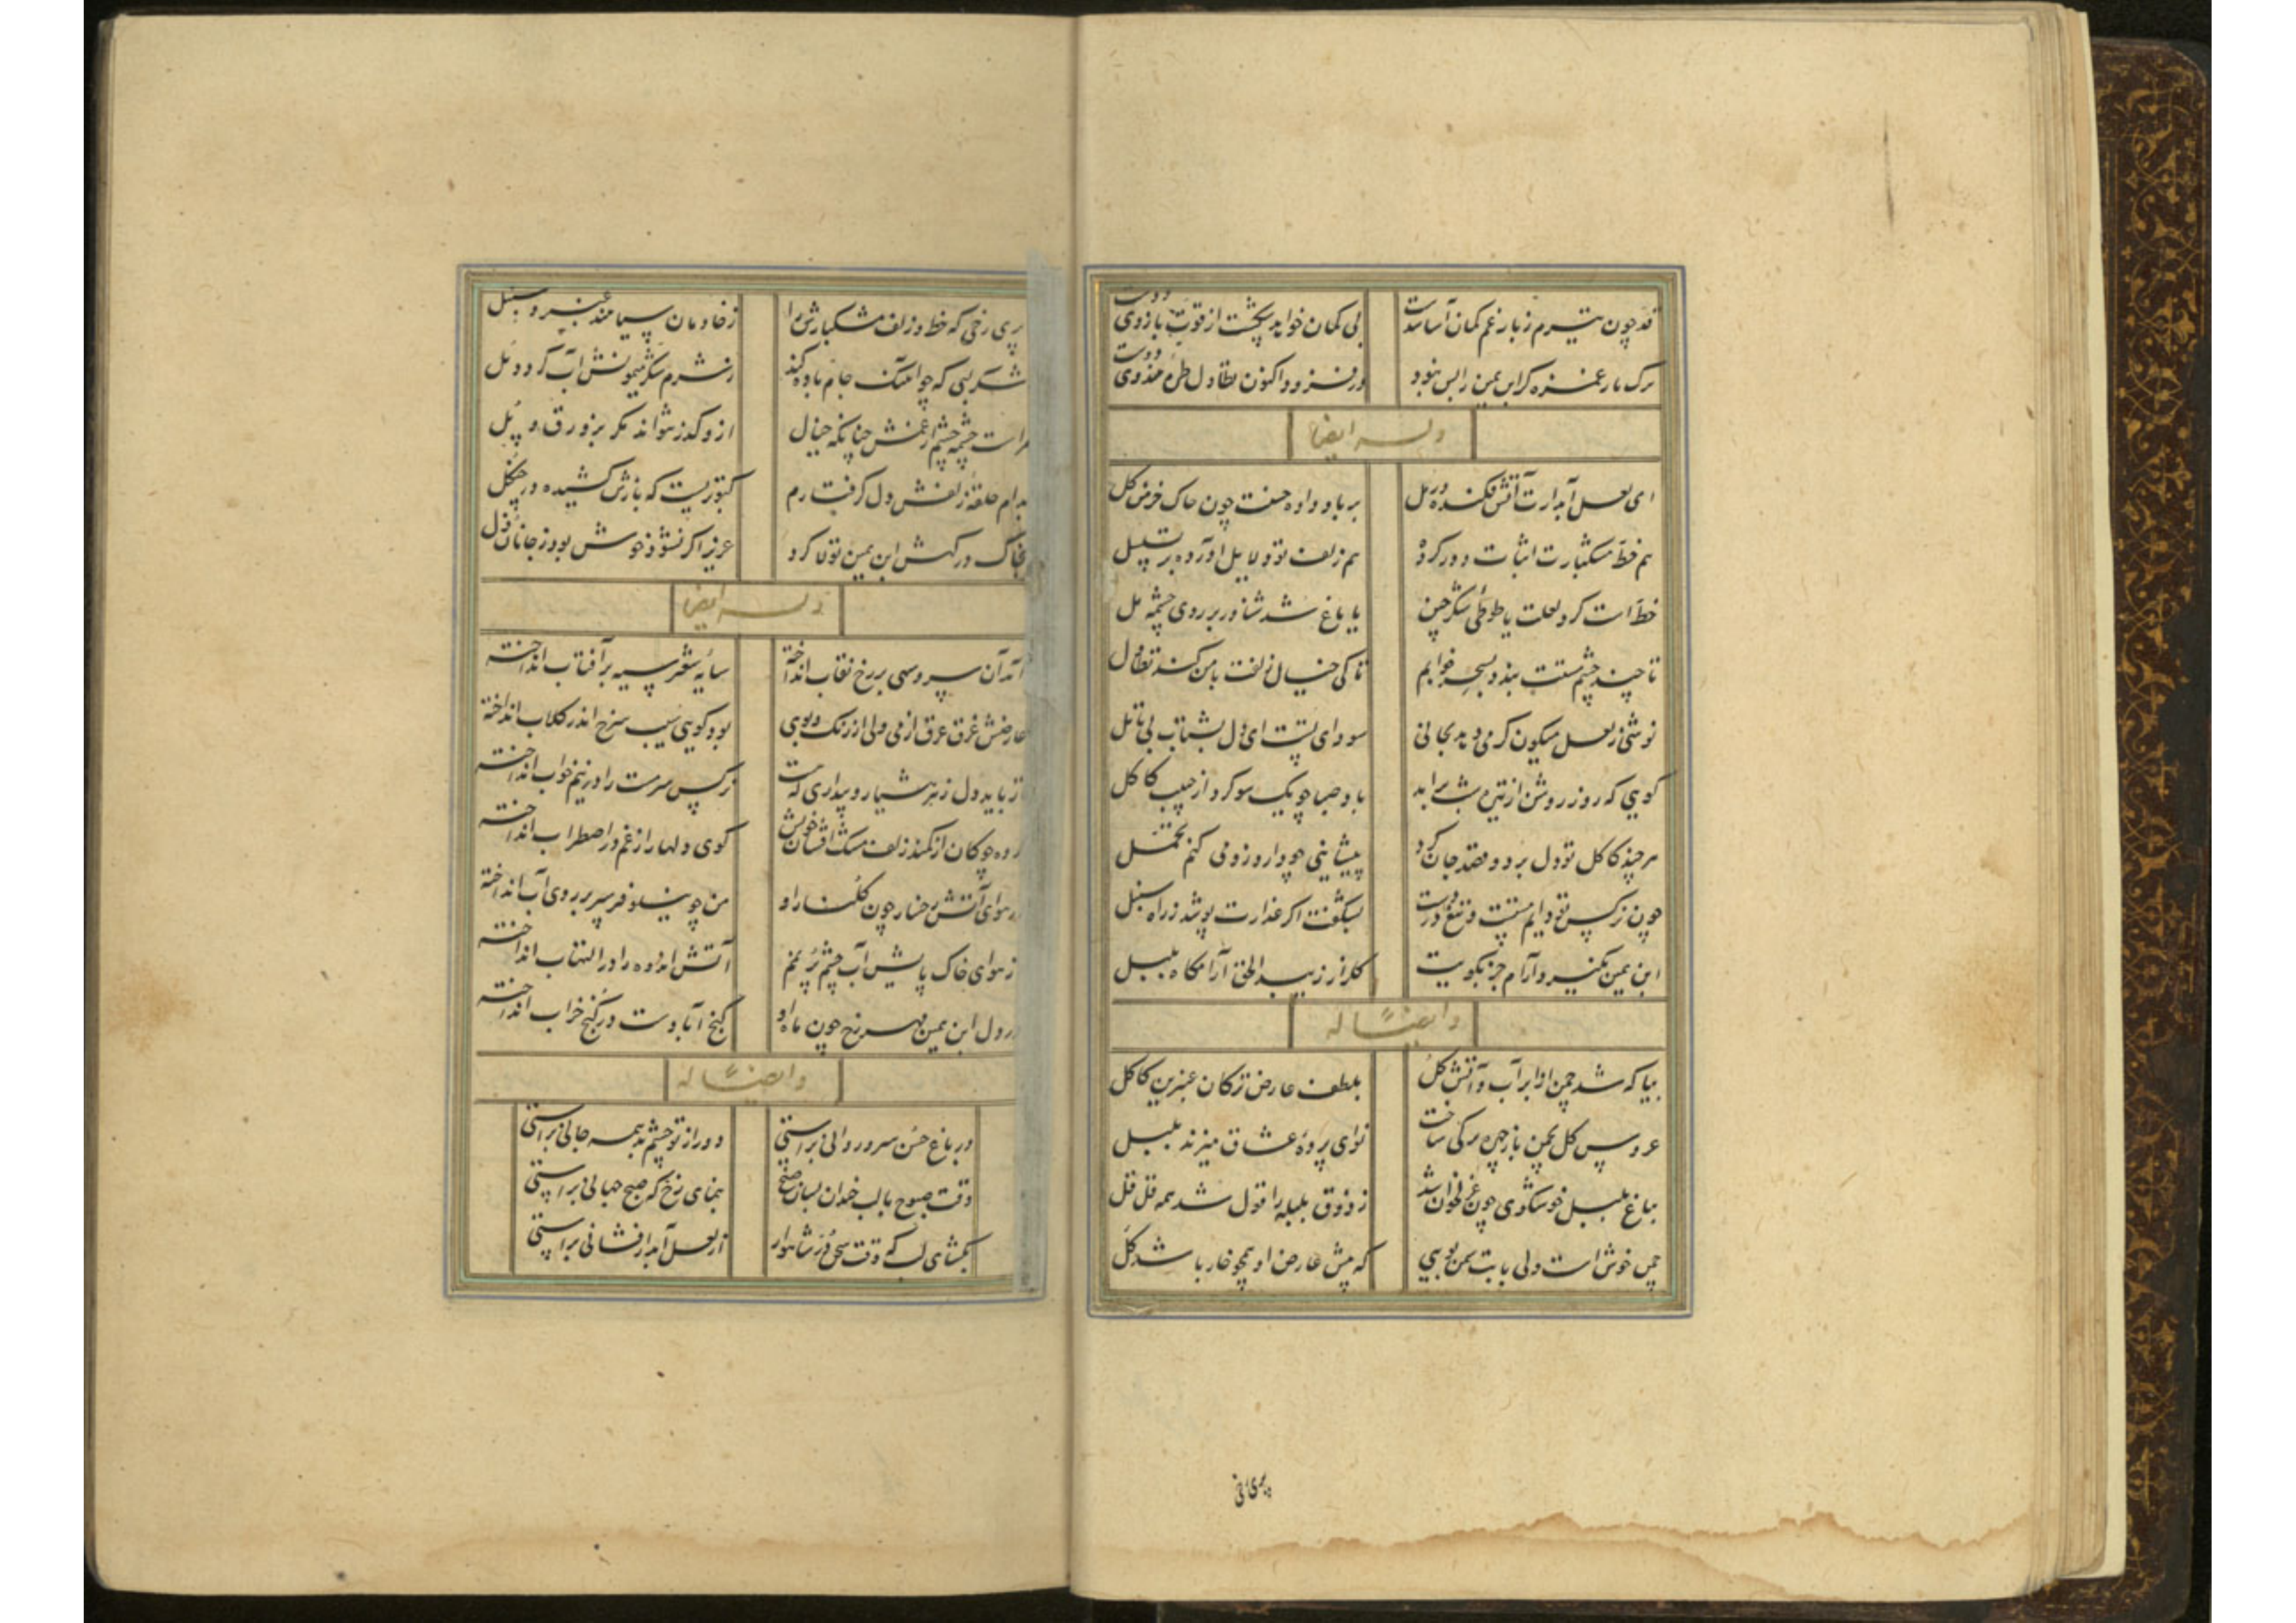 قد چون تیرم ز بار غم کمان آسا شدست
بی کمان خواهد شکست از قوت بازوی دوست
ترک یار غمزه گر ابن یمین را بس نبود
در فزود اکنون تطاول طره هندوی دوست
وله ایضا
ای لعل آبدارت آتش فکنده در مل
بر باد داده حسنت چون خاک خرمن گل
هم خط مشکبارت اثبات دور کرده
هم زلف تو دلایل آورده بر تسلسل
خط است گرد لعلت یا طوطی شکرچین
یا زاغ شد شناور بر روی چشمه مل
تا چند چشم مستت بندد بسحر خوابم
تا کی خیال زلفت با من کند تطاول
نوشی ز لعل میگون گر می دهد بجانی
سودای تست ای دل بشتاب بی تأمل
گویی که روز روشن از تیره شب برآید
باد صبا چو یک سو کرد از جبیب کاکل
هر چند کاکل تو دل برد و قصد جان کرد
پیشانیی چو دارد زو می کنم تحمل
چون نرگس تو دایم مستست و تیغ در دست
نشگفت اگر عذارت پوشد زراه سنبل
ابن یمین نگیرد آرام جز بکویت
گلزار زیبد الحق آرامگاه بلبل
وایضا له
بیا که شد چمن از ابر آب و آتش گل
بلطف عارض ترکان عنبرین کاکل
عروس گل بچمن باز چهره برگی ساخت
نوای پرده عشاق میزند بلبل
بباغ بلبل خوشگوی چون غزلخوان شد
ز ذوق بلبله را قول شد همه قل قل
چمن خوش است ولی با بت سمن بویی
که پیش عارض او همچو خار باشد گل
پری رخی
پری رخی که خط و زلف مشکبارش را
ز خادمان سیاهند عنبر و سنبل
شکر لبی که چو آهنگ جام باده کند
ز شرم شکر میگونش آب گردد مل
مراست چشمه چشم از غمش چنانکه خیال
ازو گذر نتواند مگر بزورق و پل
بدام حلقه زلفش دل گرفتارم
کبوتریست که بازش کشیده در چنگل
بخاک درگهش ابن یمین تولا کرد
عزیز اگر نشود خوش بود ز جانان ذل
وله ایضا
آمد آن سرو سهی بر رخ نقاب انداخته
سایه شعر سیه بر آفتاب انداخته
عارضش غرق عرق از می ولی از رنگ و بوی
بود گویی سیب سرخ اندر گلاب انداخته
تا رباید دل ز هر هشیار و بیداری که هست
نرگس سرمست را در نیم خواب انداخته
کرده چوگان از کمند زلف مشک افشان خویش
گوی دلها را ز غم در اضطراب انداخته
در هوای آتش رخسار چون گلنار او
من چو نیلوفر سپر بر روی آب انداخته
از هوای خاک پایش آب چشم پر نمم
آتش اندوه را در التهاب انداخته
در دل ابن یمین مهر رخ چون ماه او
گنج آبادست در کنج خراب انداخته
وایضا له
در باغ حسن سرو روانی براستی
دور از تو چشم بد همه جانی براستی
وقت صبوح با لب خندان بسان صبح
بنمای رخ که صبح جهانی براستی
بگشای لب که وقت سخن در شاهوار
از لعل آبدار فشانی براستی